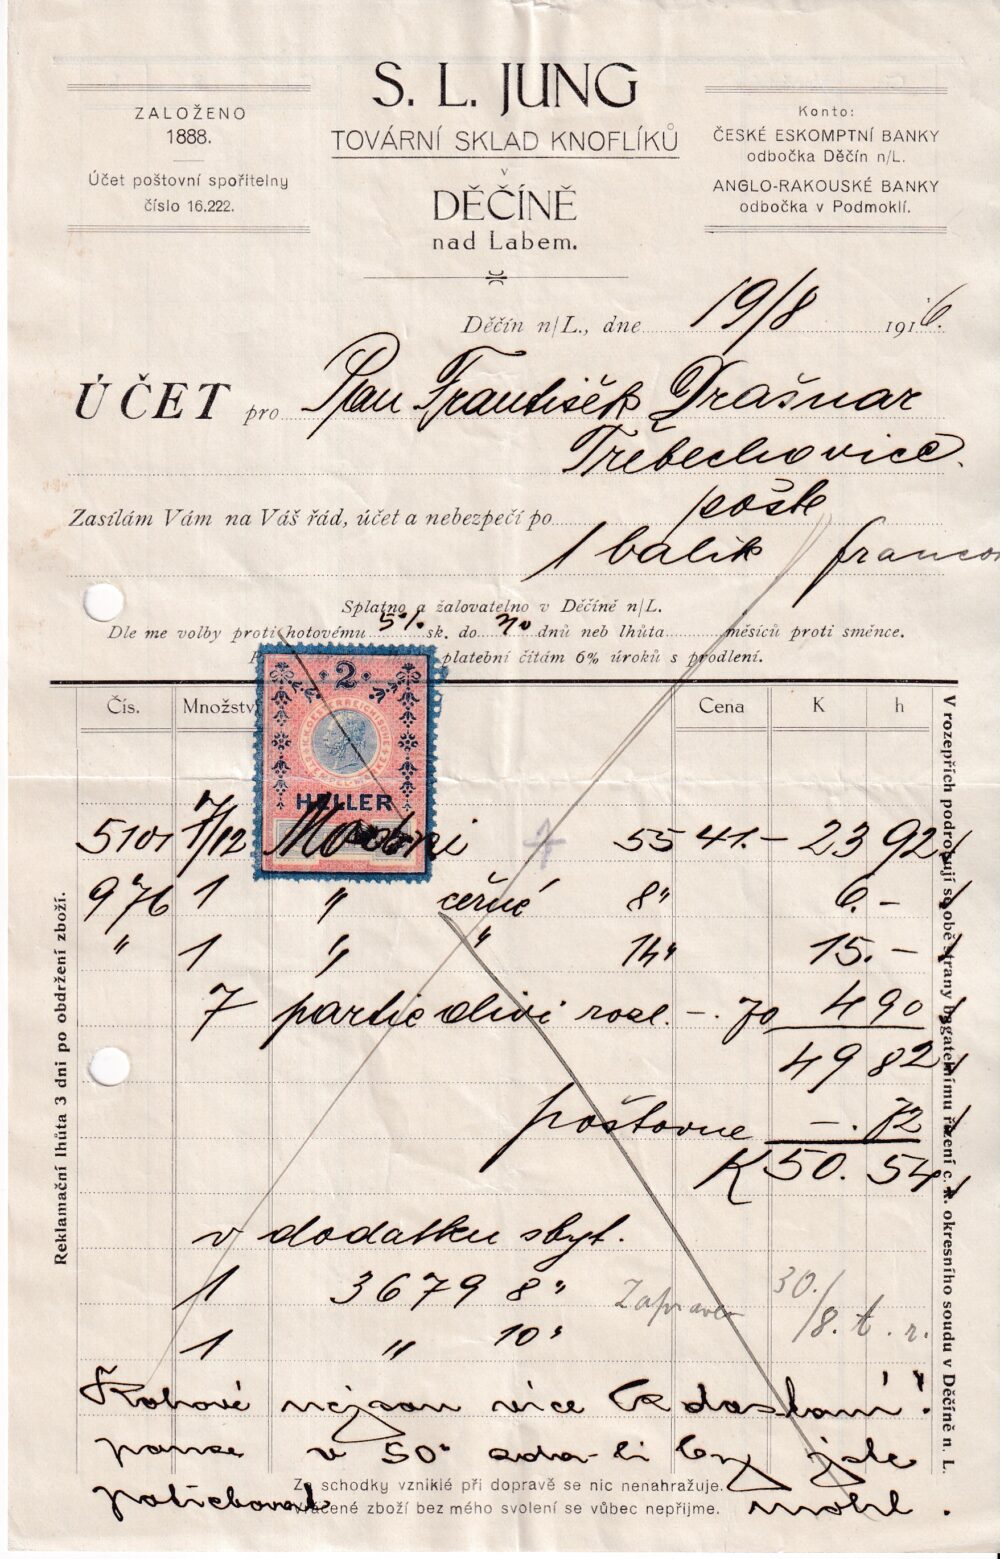 S. L. JUNG
TOVÁRNÍ SKLAD KNOFLÍKŮ
v
DĚČÍNĚ
nad Labem.
ZALOŽENO
1888.
Účet poštovní spořitelny
číslo 16.222.
Konto:
ČESKÉ ESKOMPTNÍ BANKY
odbočka Děčín n/L.
ANGLO-RAKOUSKÉ BANKY
odbočka v Podmoklí.
Děčín n/L., dne 19/8 1916.
ÚČET pro Pan František Drašnar
Třebechovice.
Zasílám Vám na Váš řád, účet a nebezpečí po poště
1 balík franco
Splatno a žalovatelno v Děčíně n/L.
Dle me volby proti hotovému 5% sk. do 30 dnů neb lhůta měsíců proti směnce.
platební čítám 6% úroků s prodlení.
Čís. Množství Cena K h
2
K.K. OESTERREICHISCHE STEMPEL-MARKE
HELLER
5101 7/12 Modní 55 41.– 23 92
976 1 " černé 8" 6.–
" 1 " " 14" 15.–
7 partie olivi rozl. –.70 4 90
49 82
poštovne –.72
K 50. 54
v dodatku zbyt.
1 3679 8"
1 " 10"
Zapraveno 30./8. t. r.
Rohové nejsou více k dostání!
pouze v 50" zda-li by jste
potřebovat mohl.
Za schodky vzniklé při dopravě se nic nenahražuje.
Vrácené zboží bez mého svolení se vůbec nepřijme.
Reklamační lhůta 3 dni po obdržení zboží.
V rozepřích podrobují se obě strany bagatelnímu řízení c. k. okresního soudu v Děčíně n. L.